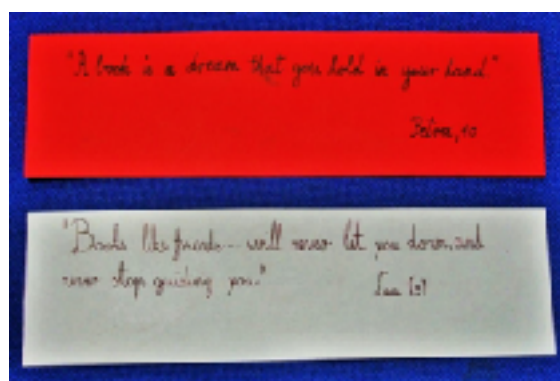 "A book is a dream that you hold in your hand."
"Books like friends... will never let you down, and
never stop guiding you."